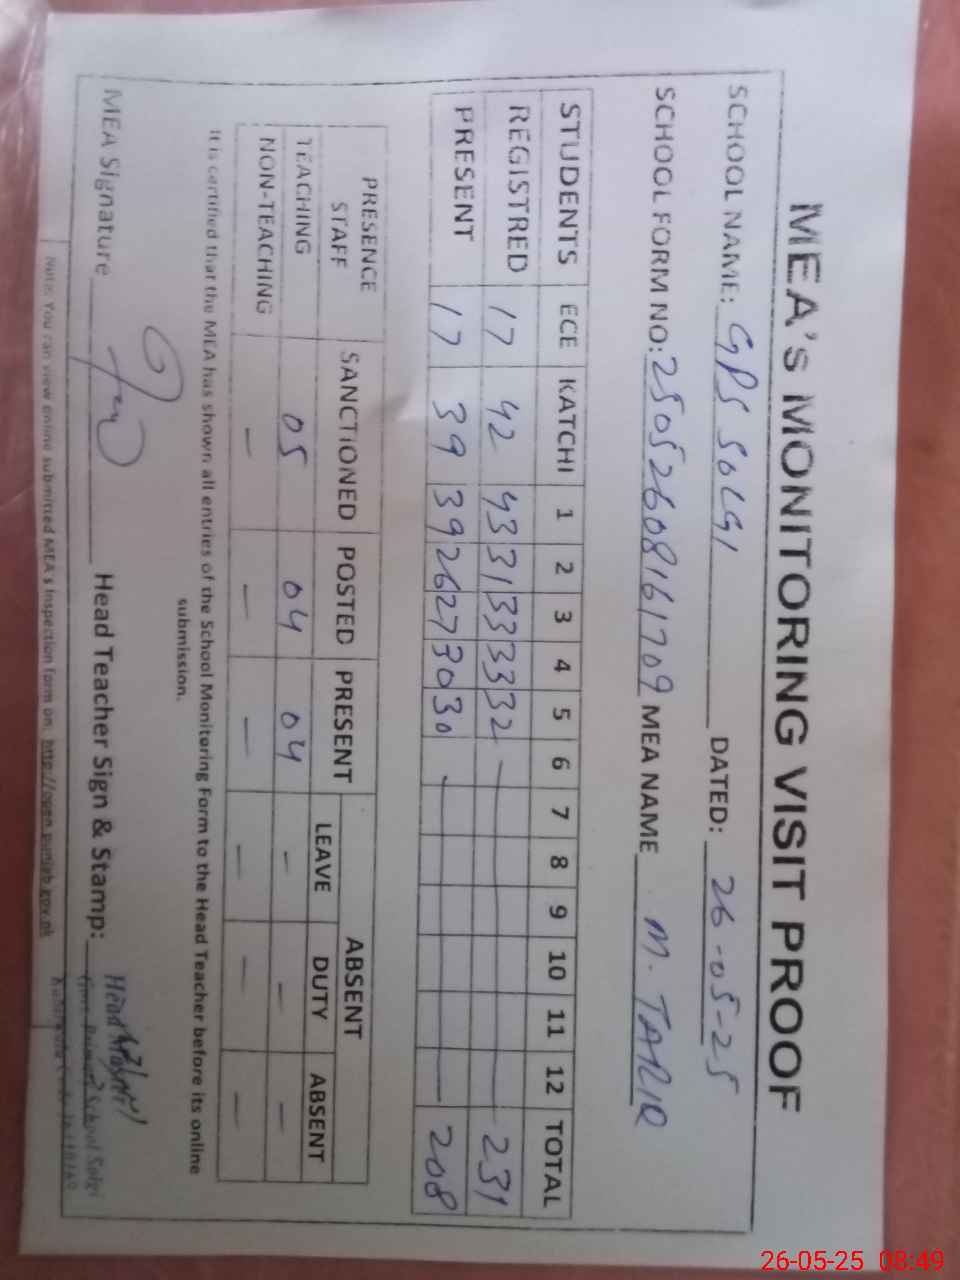 MEA'S MONITORING VISIT PROOF
SCHOOL NAME: GPS SOLGI DATED: 26-05-25
SCHOOL FORM NO: 25052608161709 MEA NAME M. TARIQ
STUDENTS ECE KATCHI 1 2 3 4 5 6 7 8 9 10 11 12 TOTAL
REGISTRED 17 42 43 31 33 33 32 — 231
PRESENT 17 39 39 26 27 30 30 — 208
PRESENCE STAFF SANCTIONED POSTED PRESENT ABSENT
LEAVE DUTY ABSENT
TEACHING 05 04 04 — — —
NON-TEACHING — — — — — —
It is certified that the MEA has shown all entries of the School Monitoring Form to the Head Teacher before its online
submission.
MEA Signature Head Teacher Sign & Stamp:
Head Master
Govt. Primary School Solgi
Note: You can view online submitted MEA's Inspection form on: http://open.punjab.gov.pk
26-05-25 08:49